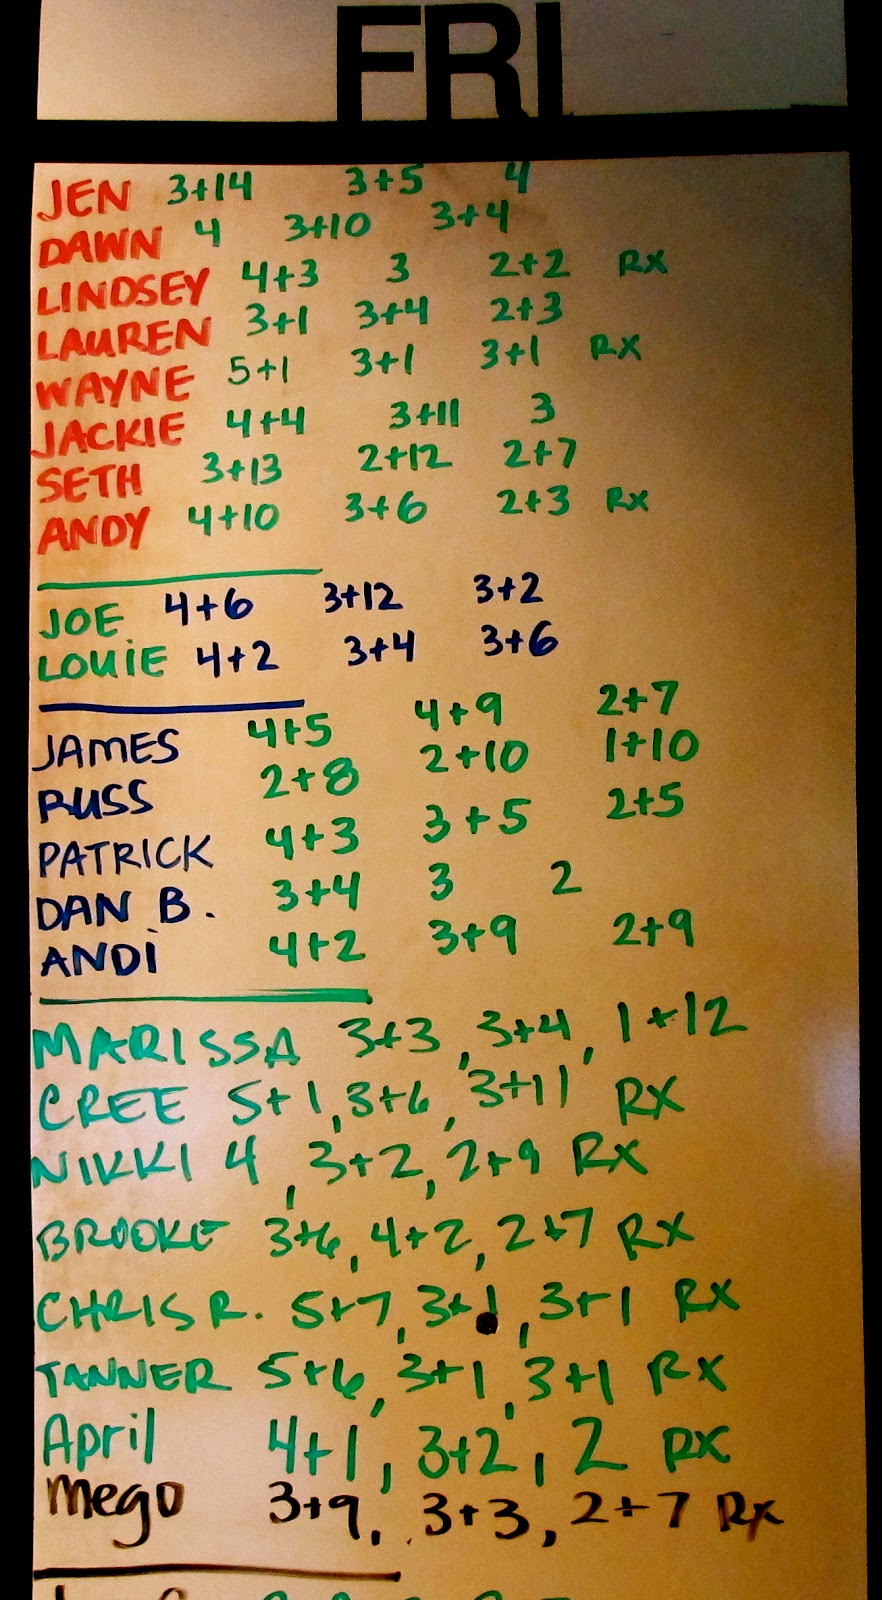 FRI
JEN 3+14 3+5 4
DAWN 4 3+10 3+4
LINDSEY 4+3 3 2+2 RX
LAUREN 3+1 3+4 2+3
WAYNE 5+1 3+1 3+1 RX
JACKIE 4+4 3+11 3
SETH 3+13 2+12 2+7
ANDY 4+10 3+6 2+3 Rx
JOE 4+6 3+12 3+2
LOUiE 4+2 3+4 3+6
JAMES 4+5 4+9 2+7
RUSS 2+8 2+10 1+10
PATRICK 4+3 3+5 2+5
DAN B. 3+4 3 2
ANDi 4+2 3+9 2+9
MARISSA 3+3, 3+4, 1+12
CREE 5+1, 3+6, 3+11 RX
NIKKI 4, 3+2, 2+9 RX
BROOKE 3+6, 4+2, 2+7 RX
CHRIS R. 5+7, 3+1, 3+1 RX
TANNER 5+6, 3+1, 3+1 RX
April 4+1, 3+2, 2 RX
Mego 3+9, 3+3, 2+7 Rx